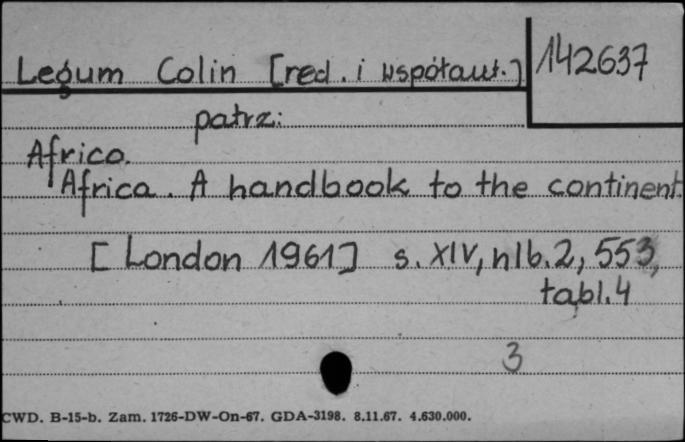 Legum Colin [red. i współaut.] 142637
patrz:
Africa.
Africa. A handbook to the continent.
[London 1961] s. XIV, nlb. 2, 553,
tabl. 4
3
CWD. B-15-b. Zam. 1726-DW-On-67. GDA-3198. 8.11.67. 4.630.000.